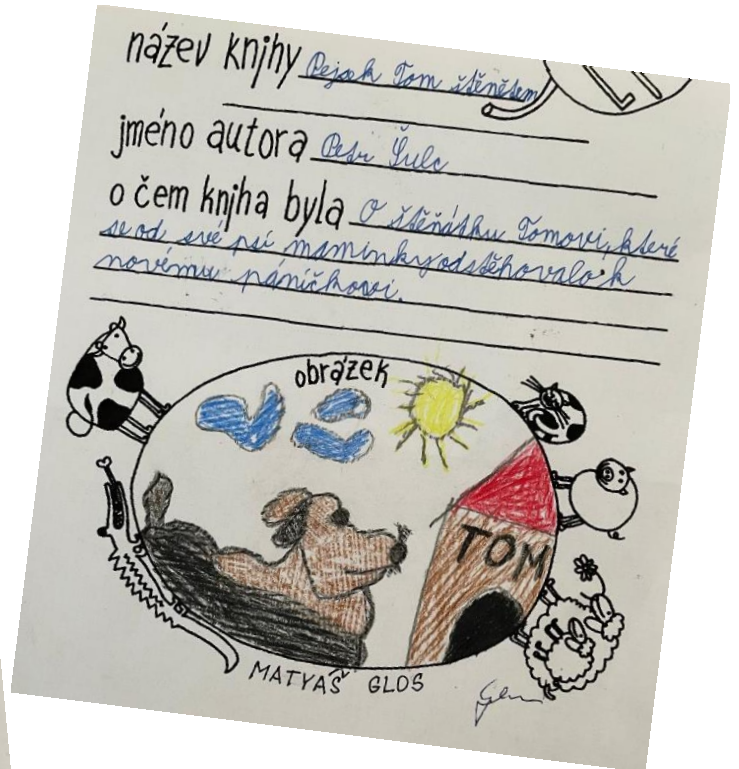 název knihy Pejsek Tom štěnětem
jméno autora Petr Šulc
o čem kniha byla O štěňátku Tomovi, které
se od své psí maminky odstěhovalo k
novému páníčkovi.
obrázek
TOM
MATYAŠ GLOS